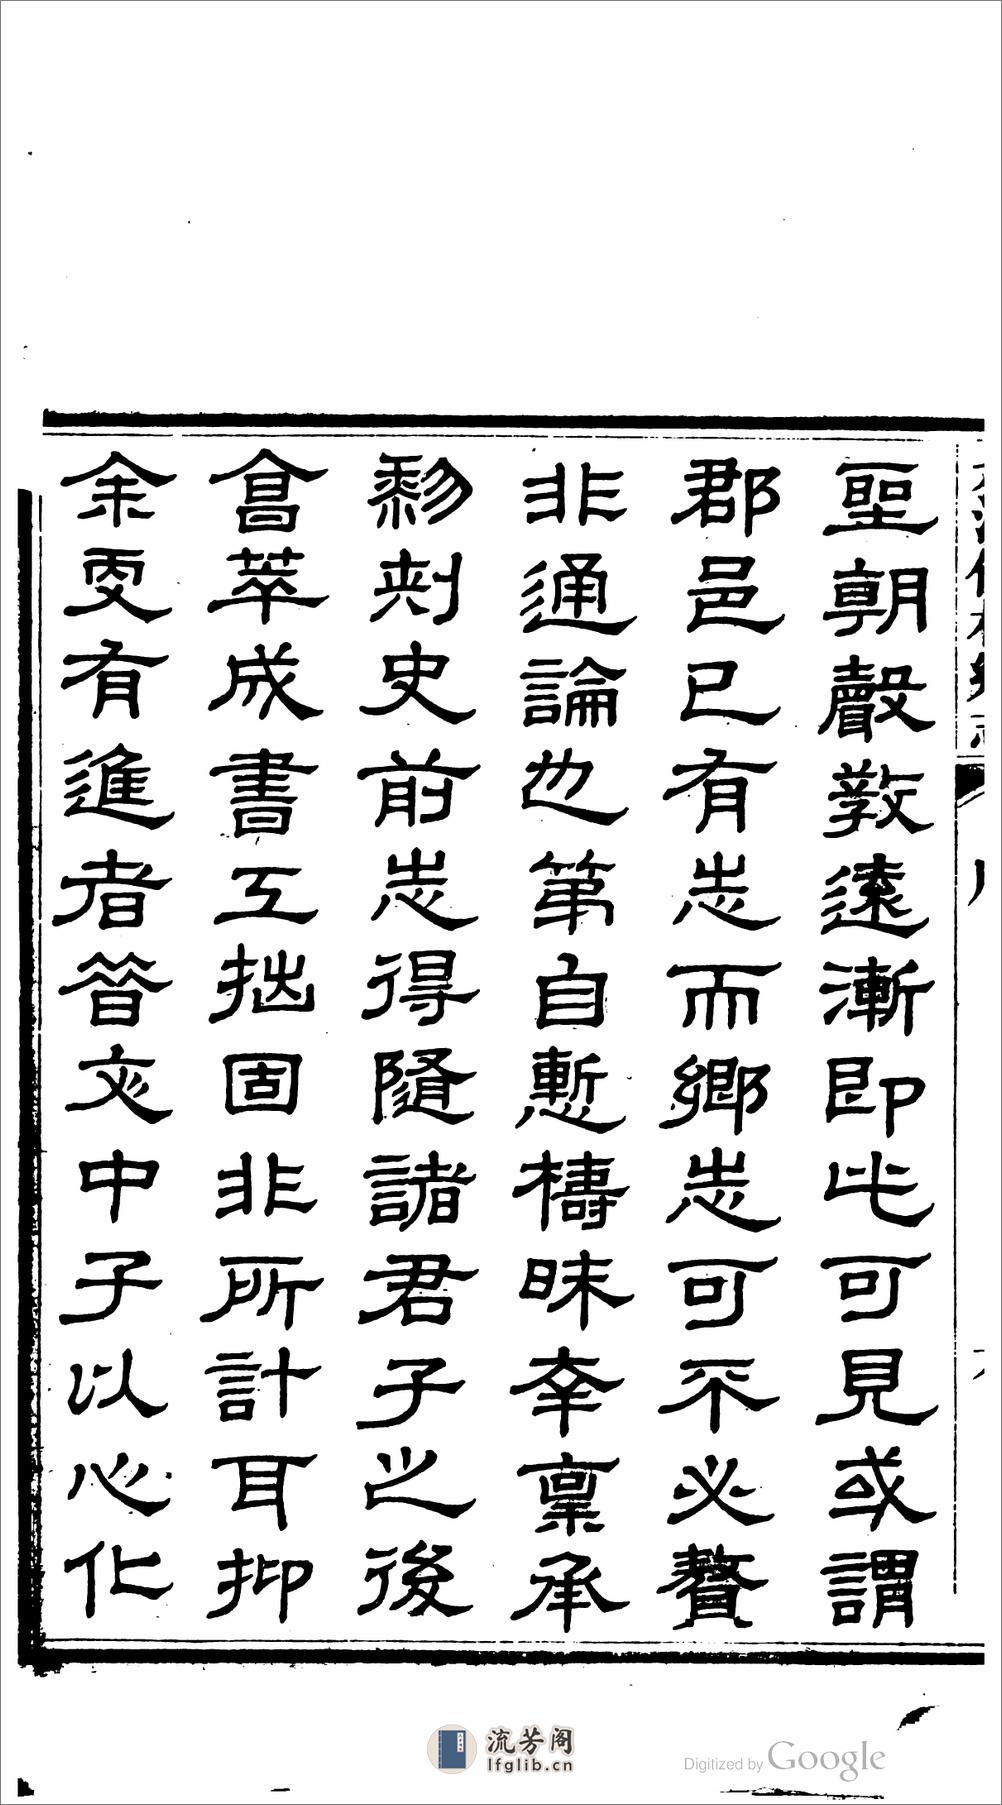 聖朝聲敎遠漸即此可見或謂
郡邑已有志而鄉志可不必贅
非通論也第自慙檮昧幸稟承
剌史前志得隨諸君子之後
會萃成書工拙固非所計耳抑
余更有進者昔文中子以心化
流芳阁
lfglib.cn
Digitized by Google